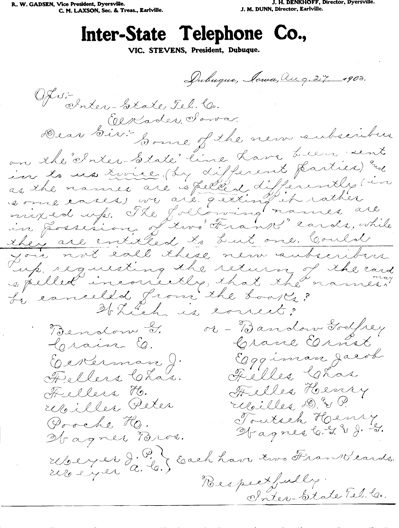 R. W. GADSEN, Vice President, Dyersville.
J. H. DENKHOFF, Director, Dyersville.
C. M. LAXSON, Sec. & Treas., Earlville.
J. M. DUNN, Director, Earlville.
Inter-State Telephone Co.,
VIC. STEVENS, President, Dubuque.
Dubuque, Iowa, Aug. 27 1903.
Inter-State Tel. Co.
Elkader Iowa.
Dear Sir:- Some of the new subscribers
on the "Inter-State" line have been sent
in to us twice (by different parties) and
as the names are spelled differently (in
some cases) we are getting it rather
mixed up. The following names are
in possession of two "Frank" cards, while
they are entitled to but one. Could
you not call these new subscribers
up, requesting the return of the card
spelled incorrectly, that the names may
be canceled from the books?
Which is correct?
Bendow G. or - Bandow Godfrey
Crain E. Crane Ernst
Eckerman J. Eggiman Jacob
Fellers Chas. Felles Chas.
Fellers H. Felles Henry
Miller Peter Milles D. & P.
Pooche H. Toutsch Henry
Wagner Bros. Wagnes
Meyer J. P.
Meyer A. C. } Each have two Frank cards.
Respectfully
Inter-State Tel. Co.